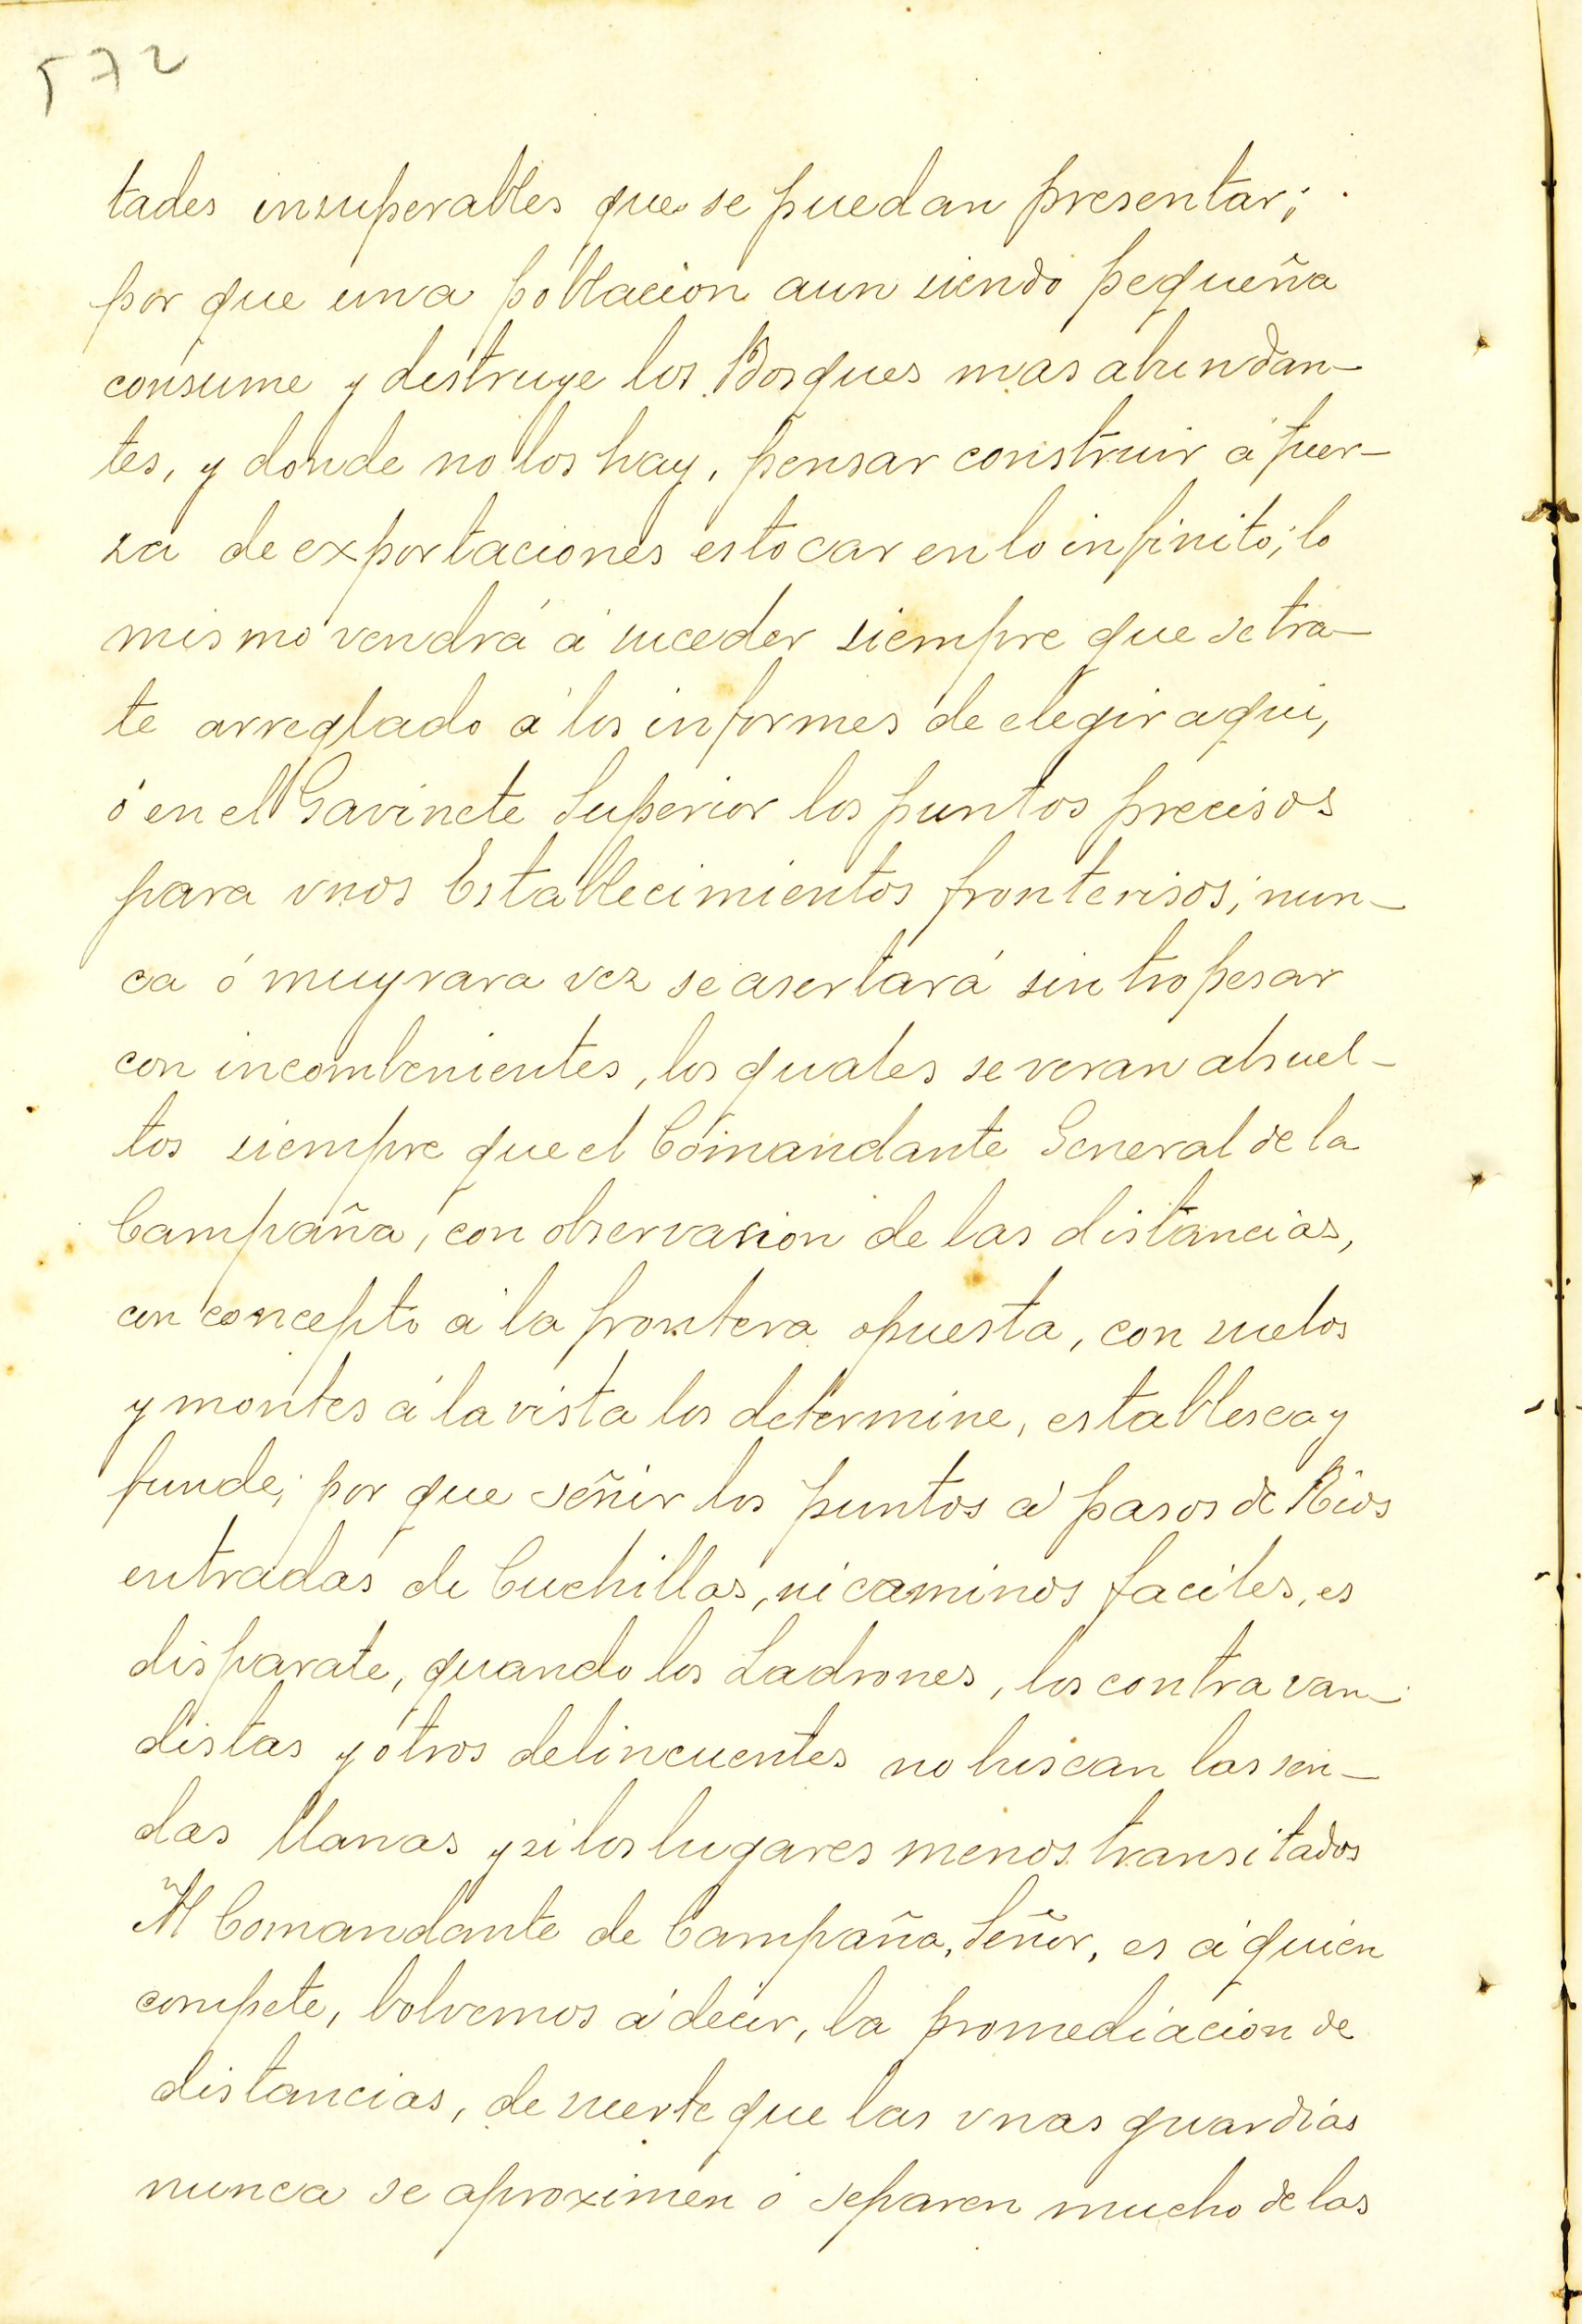 572
tades insuperables que se puedan presentar;
por que una poblacion aun siendo pequeña
consume y destruye los Bosques mas abundan-
tes, y donde no los hay, pensar construir á fuer-
za de exportaciones es tocar en lo infinito; lo
mismo vendrá á suceder siempre que se tra-
te arreglado á los informes de elegir aqui,
ó en el Gavinete Superior los puntos precisos
para vnos Establecimientos fronterisos; nun-
ca ó muy rara vez se asertará sin tropesar
con incombenientes, los quales se veran absuel-
tos siempre que el Comandante General de la
Campaña, con observacion de las distancias,
con concepto á la frontera opuesta, con suelos
y montes á la vista los determine, establesca y
funde; por que señir los puntos á pasos de Rios
entradas de Cuchillas, ni caminos faciles, es
disparate, quando los Ladrones, los contravan-
distas y otros delincuentes no buscan las sen-
das llanas y si los lugares menos transitados
Al Comandante de Campaña, Señor, es á quien
compete, bolvemos á decir, la promediacion de
distancias, de suerte que las vnas guardias
nunca se aproximen ó separen mucho de las